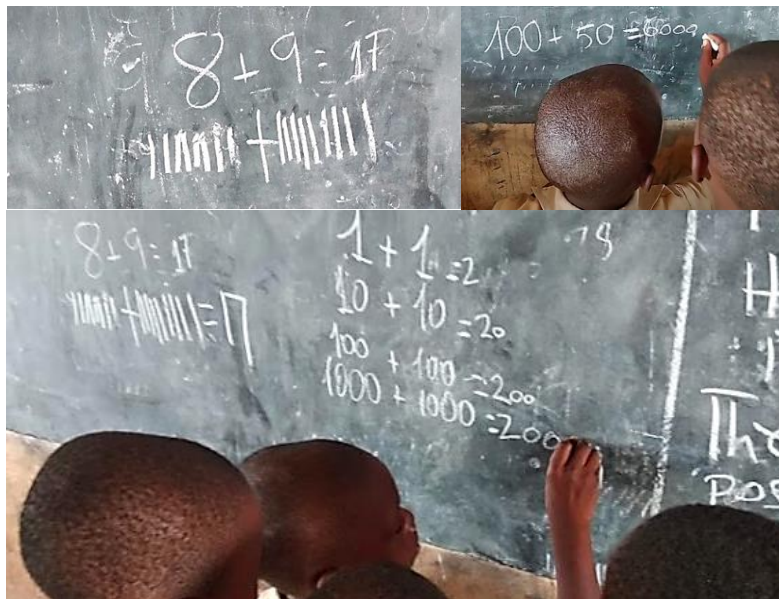 8 + 9 = 17
100 + 50 = 6000
8 + 9 = 17
= 17
1 + 1 = 2
10 + 10 = 20
100 + 100 = 200
1000 + 1000 = 200
18
H
Thr
Pos